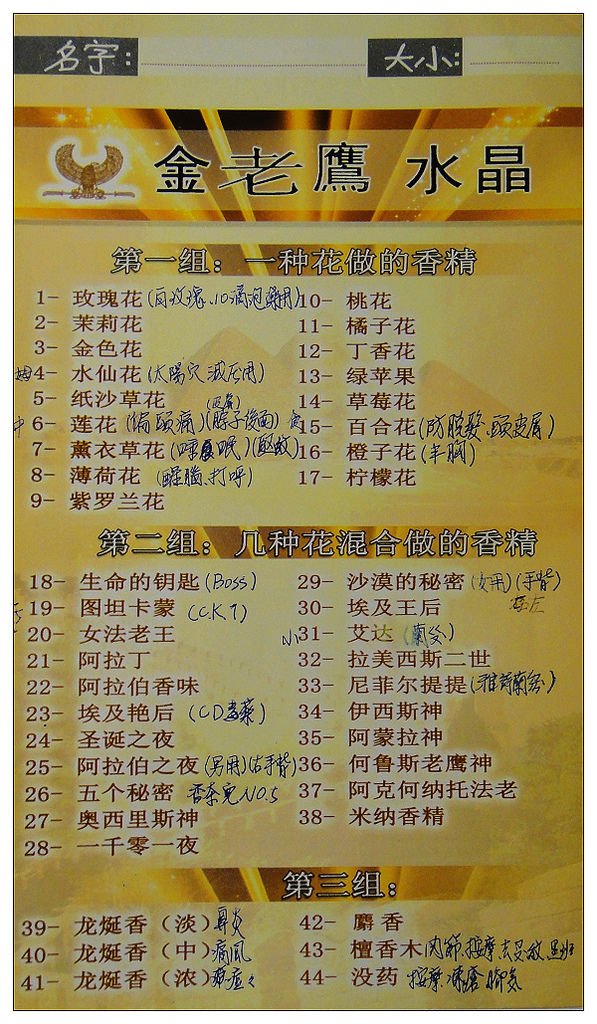 名字: 大小:
金老鷹 水晶
第一组：一种花做的香精
1- 玫瑰花
2- 茉莉花
3- 金色花
4- 水仙花 (太陽穴
5- 纸沙草花
6- 莲花 (偏頭痛) (脖子後面)
7- 薰衣草花
8- 薄荷花 (醒腦、打呼)
9- 紫罗兰花
10- 桃花
11- 橘子花
12- 丁香花
13- 绿苹果
14- 草莓花
15- 百合花 (防脫髮、頭皮屑)
16- 橙子花 (丰胸)
17- 柠檬花
第二组：几种花混合做的香精
18- 生命的钥匙 (Boss)
19- 图坦卡蒙 (C.K.1)
20- 女法老王
21- 阿拉丁
22- 阿拉伯香味
23- 埃及艳后 (CD毒藥)
24- 圣诞之夜
25- 阿拉伯之夜 (男用) 右手背)
26- 五个秘密 香奈兒NO.5
27- 奥西里斯神
28- 一千零一夜
29- 沙漠的秘密 (女用) (手背)
30- 埃及王后
31- 艾达 (蘭蔻)
32- 拉美西斯二世
33- 尼菲尔提提 (雅詩蘭黛)
34- 伊西斯神
35- 阿蒙拉神
36- 何鲁斯老鹰神
37- 阿克何纳托法老
38- 米纳香精
第三组：
39- 龙涎香（淡）鼻炎
40- 龙涎香（中）痛風
41- 龙涎香（浓）
42- 麝香
43- 檀香木 関節、按摩
44- 没药 按摩、凍瘡、腳氣